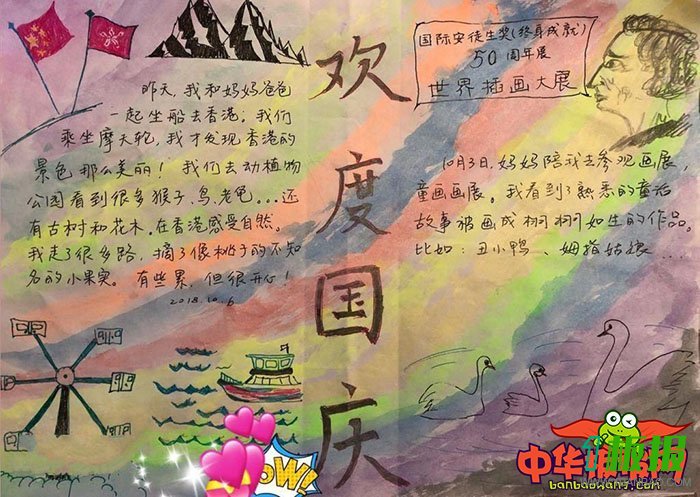 欢度国庆
昨天,我和妈妈爸爸
一起坐船去香港;我们
乘坐摩天轮,我才发现香港的
景色那么美丽!我们去动植物
公园看到很多猴子、鸟、老龟...还
有古树和花木。在香港感受自然。
我走了很多路,摘了像桃子的不知
名的小果实。有些累,但很开心!
2018.10.6
国际安徒生奖(终身成就)
50周年展
世界插画大展
10月3日,妈妈陪我去参观画展,
童画画展。我看到了熟悉的童话
故事被画成栩栩如生的作品。
比如:丑小鸭、姆指姑娘......
WOW!
中华
banbaowang.com